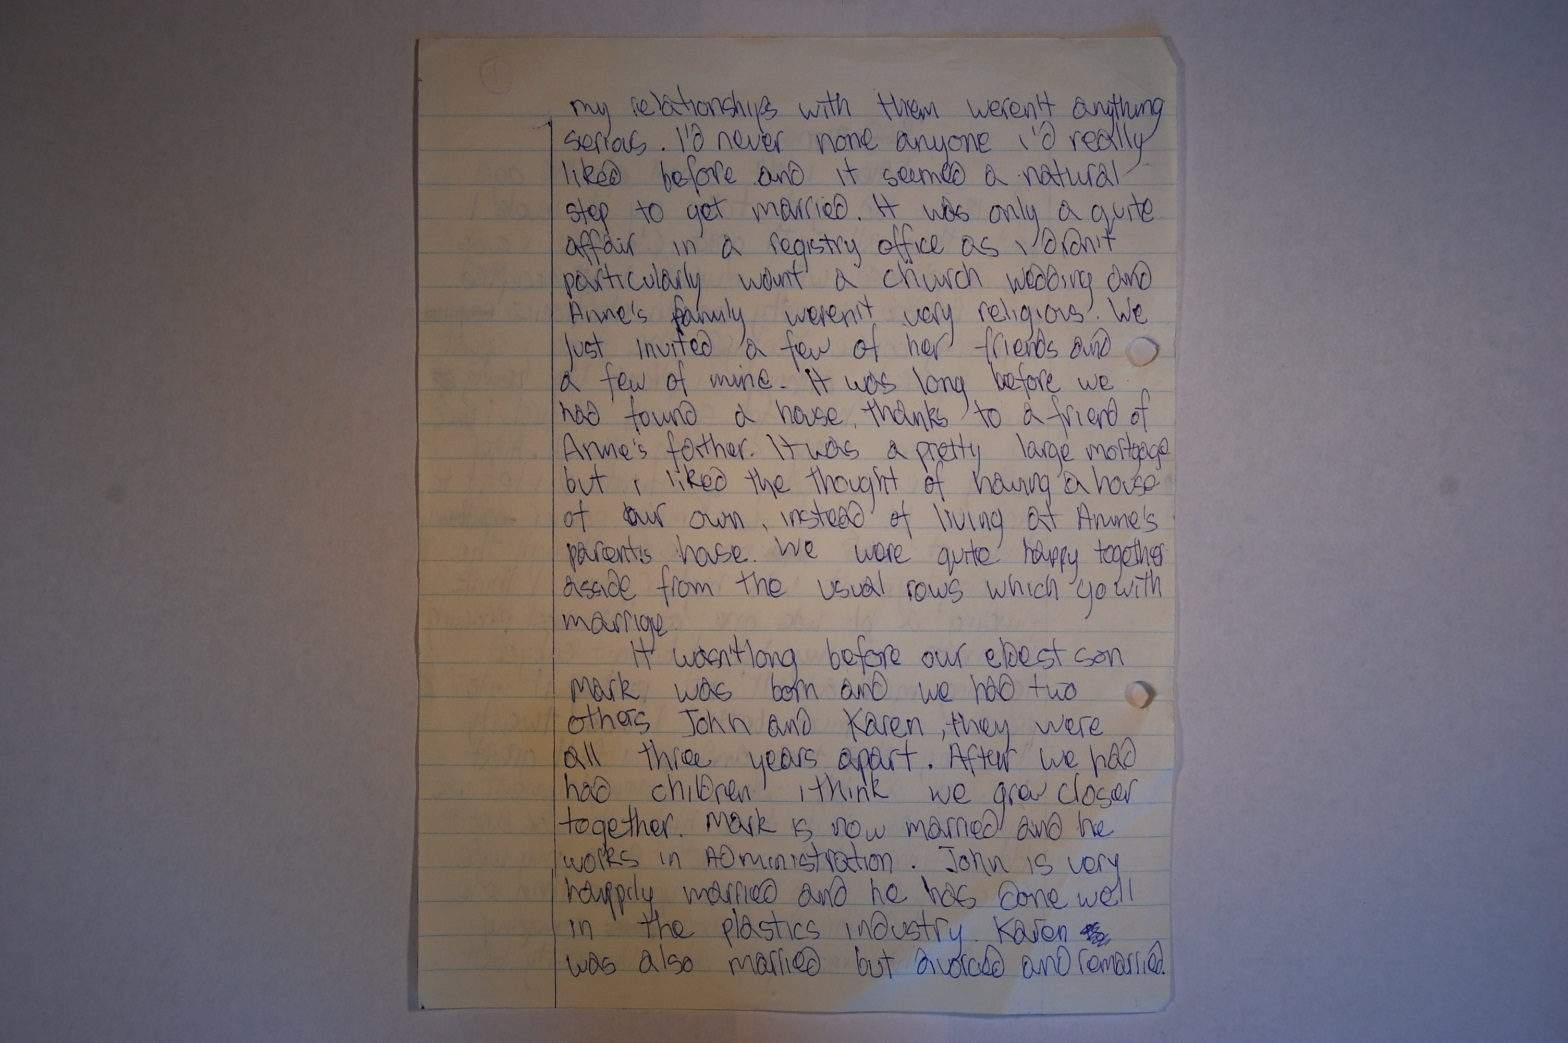 my relationships with them weren't anything
serious. I'd never none anyone i'd really
liked before and it seemed a natural
step to get married. It was only a quite
affair in a registry office as i didn't
particularly want a church wedding and
Anne's family weren't very religious. We
just invited a few of her friends and
a few of mine. It was long before we
had found a house, thanks to a friend of
Anne's father. It was a pretty large mortgage
but i liked the thought of having a house
of our own, instead of living at Anne's
parents house. We were quite happy together
asside from the usual rows which go with
marrige
It wasn't long before our eldest son
Mark was born and we had two
others John and Karen, they were
all three years apart. After we had
had children i think we grew closer
together. Mark is now married and he
works in Administration. John is very
happily married and he has done well
in the plastics industry. Karen
was also married but divorced and remarried.